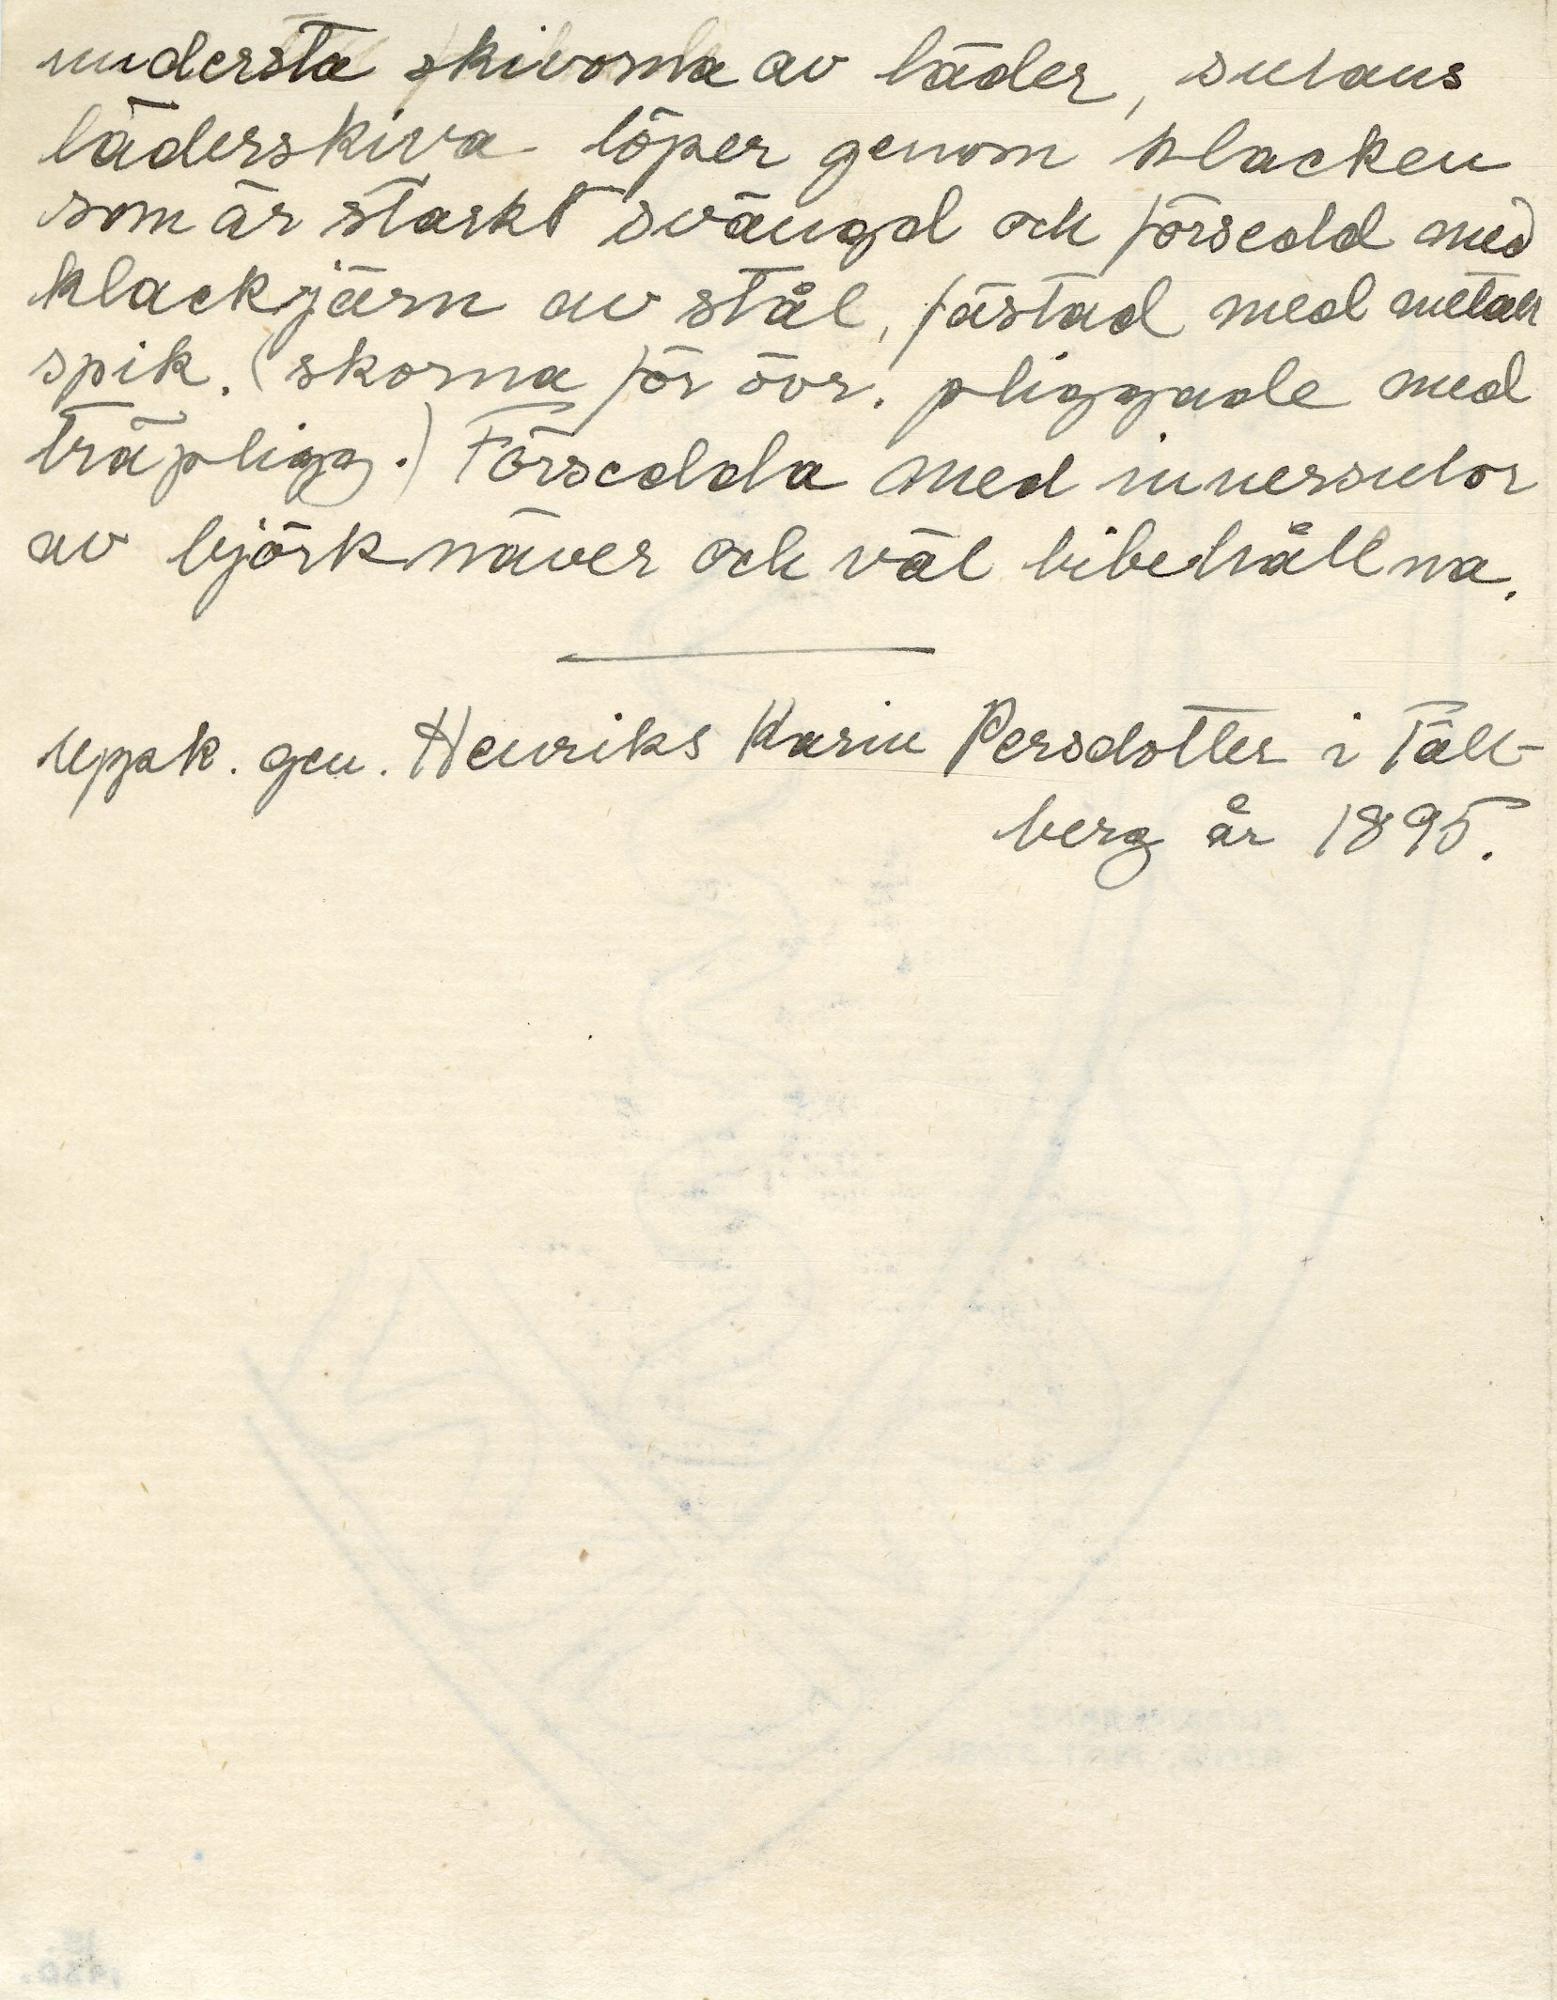 understa skivorna av läder, sulans
läderskiva löper genom klacken
som är starkt svängd och försedd med
klackjärn av stål, fästad med metall
spik. (skorna för övr. pliggade med
träpligg.) Försedda med innersulor
av björknäver och väl bibehållna.
uppk. gen. Henriks Karin Persdotter i Täll-
berg år 1895.